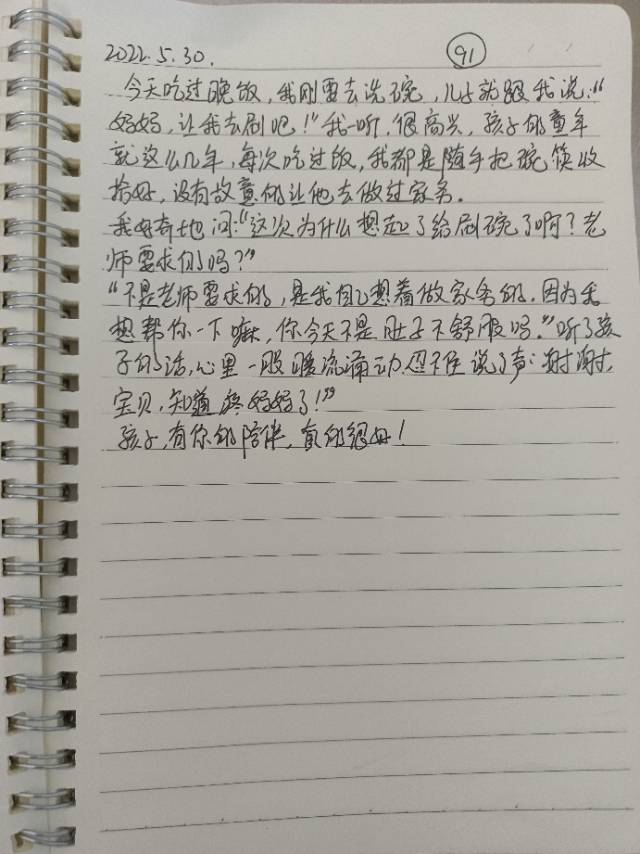 2022.5.30. 91
今天吃过晚饭，我刚要去洗碗，儿子就跟我说：“
妈妈，让我去刷吧！”我一听，很高兴，孩子的童年
就这么几年，每次吃过饭，我都是随手把碗筷收
拾好，没有故意的让他去做过家务。
我好奇地问：“这次为什么想起了给刷碗了啊？老
师要求的吗？”
“不是老师要求的，是我自己想着做家务的。因为我
想帮你一下嘛，你今天不是肚子不舒服吗。”听了孩
子的话，心里一股暖流涌动，忍不住说了声：谢谢，
宝贝，知道疼妈妈了！”
孩子，有你的陪伴，真的很好！